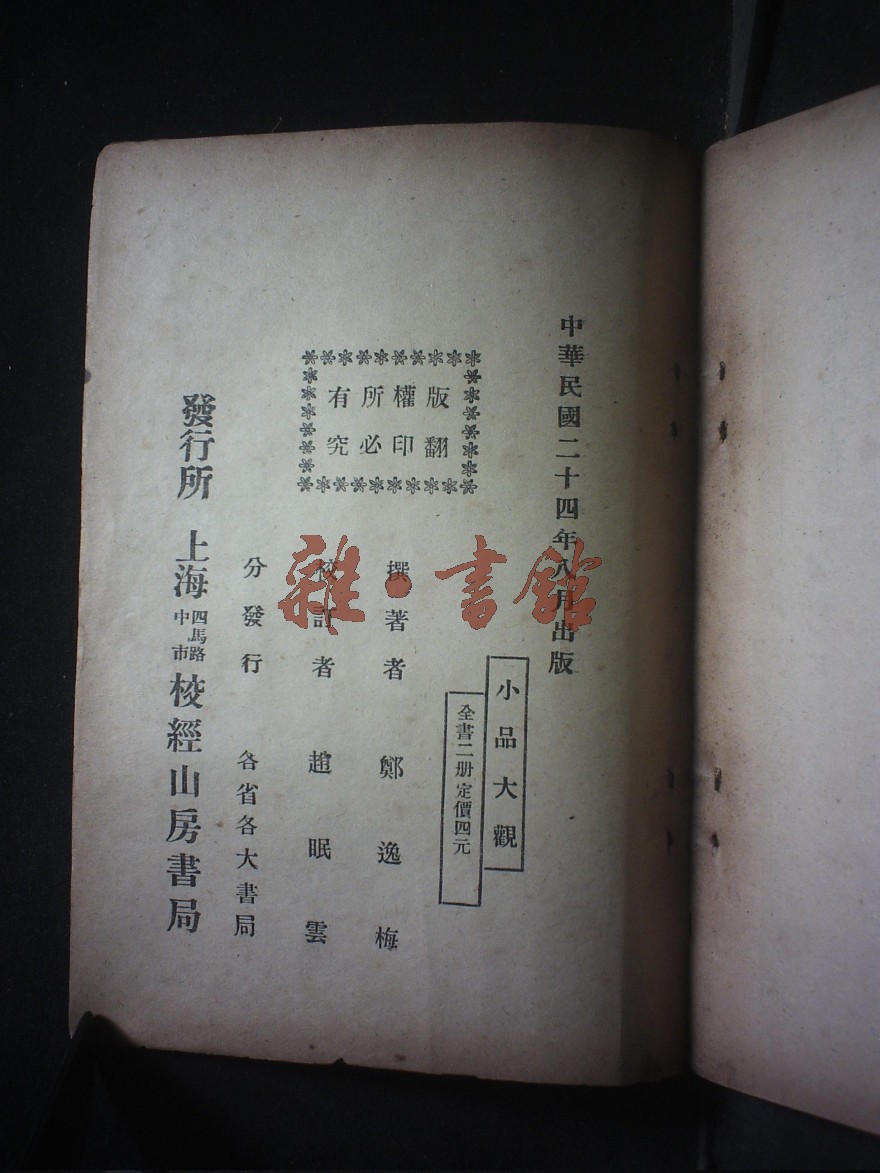 中華民國二十四年八月出版
小品大觀
全書二册定價四元
版權所有
翻印必究
撰著者 鄭逸梅
校訂者 趙眠雲
分發行 各省各大書局
發行所 上海四馬路中市 校經山房書局
雜·書館